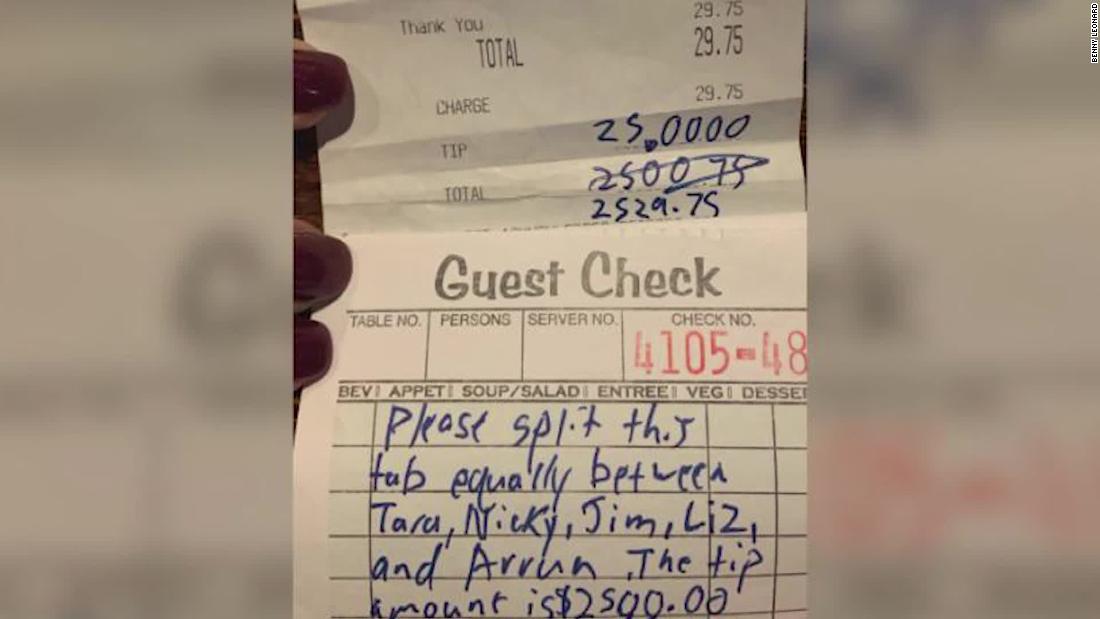 29.75
Thank You
TOTAL 29.75
CHARGE 29.75
TIP 25.0000
2500.75
TOTAL 2529.75
Guest Check
TABLE NO. PERSONS SERVER NO. CHECK NO.
4105-48
BEV APPET SOUP/SALAD ENTREE VEG DESSE
Please split this
tab equally between
Tara, Nicky, Jim, Liz,
and Arrun. The tip
amount is $2500.00
BENNY LEONARD